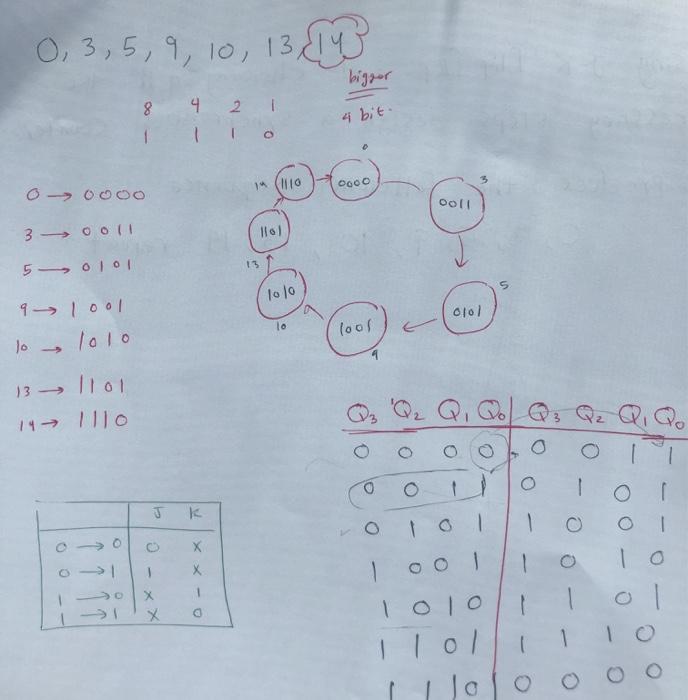 0, 3, 5, 9, 10, 13, 14
bigger
4 bit.
8 4 2 1
1 1 1 0
0 → 0000
3 → 0011
5 → 0101
9 → 1001
10 → 1010
13 → 1101
14 → 1110
0
14 1110 → 0000
0011 3
1101
13
1010
10
1001
9
0101 5
Q3 Q2 Q1 Q0 Q3 Q2 Q1 Q0
0 0 0 0 0 0 1 1
0 0 1 1 0 1 0 1
0 1 0 1 1 0 0 1
1 0 0 1 1 0 1 0
1 0 1 0 1 1 0 1
1 1 0 1 1 1 1 0
1 1 1 0 0 0 0 0
J K
0 → 0 0 X
0 → 1 1 X
1 → 0 X 1
1 → 1 X 0